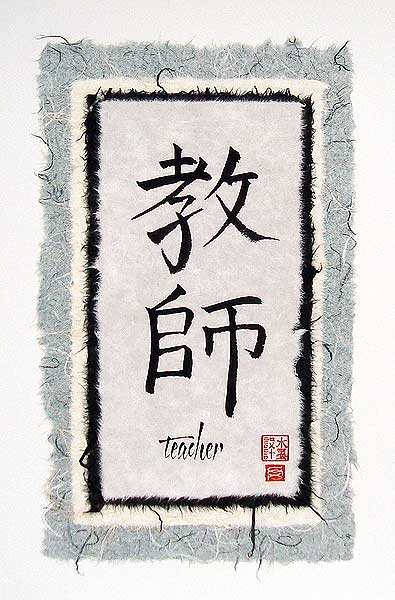 教
師
teacher
水墨
設計